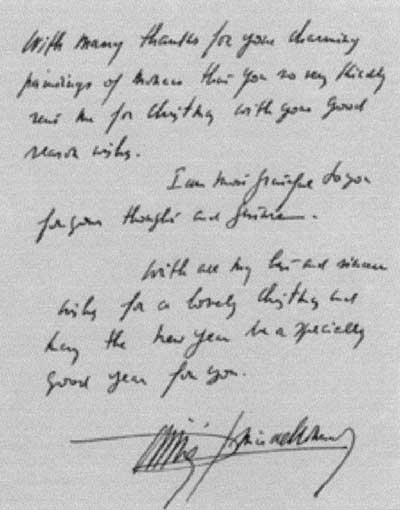 With many thanks for your charming
paintings of Monaco that you so very kindly
sent me for Christmas with your good
season wishes.
I am most grateful to you
for your thought and
With all my best and sincere
wishes for a lovely Christmas and
may the New Year be a specially
good year for you.